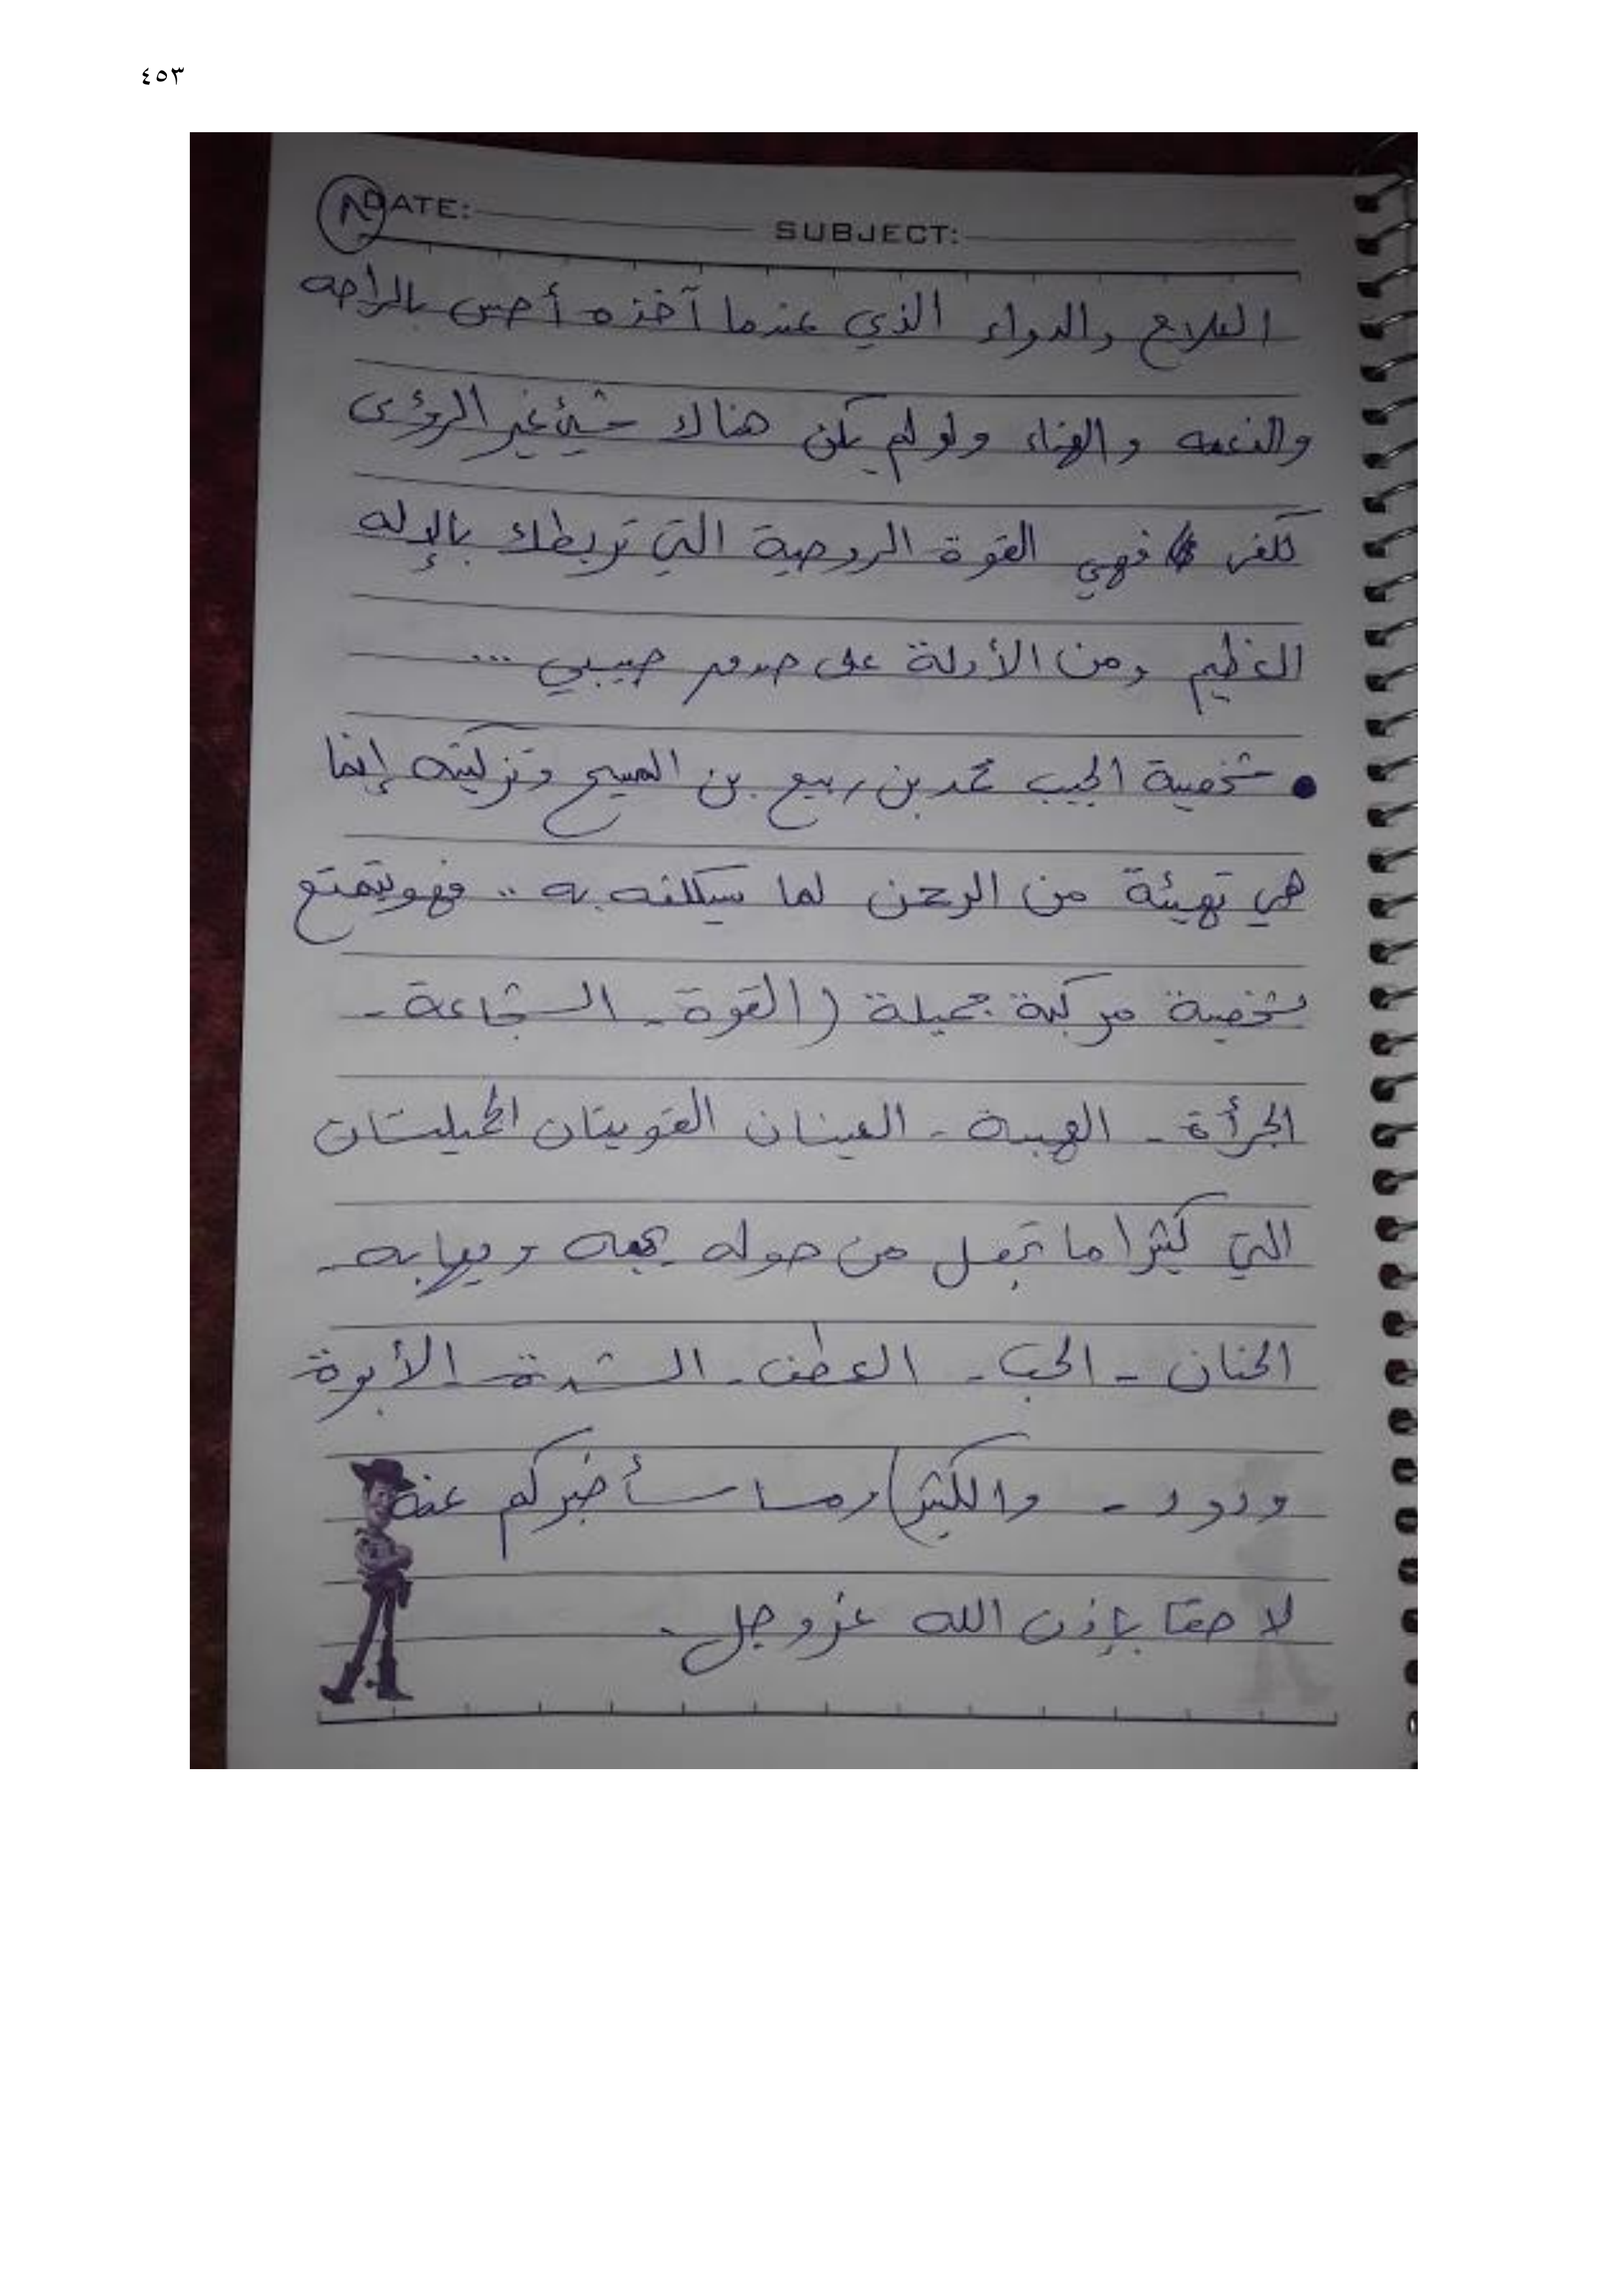 ٤٥٣
٨
DATE: SUBJECT:
العلاج والدواء الذي عندما آخذه أحس بالراحه
والنعمه والهناء ولو لم يكن هناك شيئ غير الرؤى
لكفى فهي القوة الروحية التي تربطك بالإله
العظيم ومن الأدلة على صدق حبيبي ...
• شخصية الحبيب محمد بن ربيع بن المسيح وتزكيته إنما
هي تهيئة من الرحمن لما سيكلفه به .. فهو يتمتع
بشخصية مركبة جميلة (القوة - الشجاعة -
الجرأة - الهيبة - العينان القويتان الجميلتان
التي كثيرا ما تجعل من حوله يحبه ويهابه -
الحنان - الحب - العطف - الشدة - الأبوة
ودود - والكثير) وما سأخبركم عنه
لاحقا بإذن الله عز وجل .